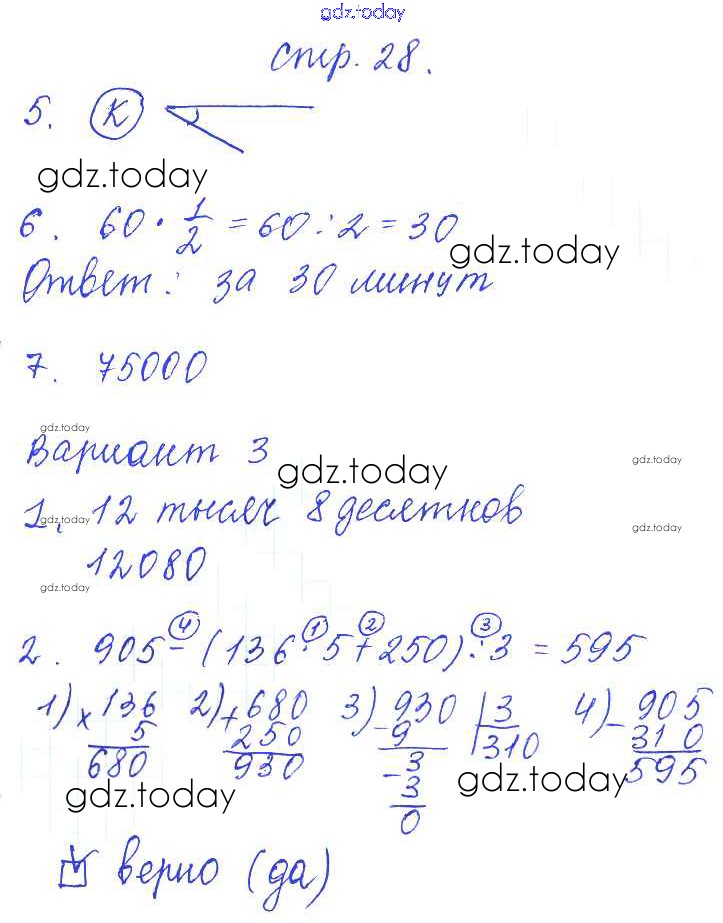 gdz.today
стр. 28.
5. К
gdz.today
6. 60 · 1/2 = 60 : 2 = 30
gdz.today
Ответ: за 30 минут
7. 75000
gdz.today
Вариант 3
gdz.today
gdz.today
1. 12 тысяч 8 десятков
gdz.today
gdz.today
12080
gdz.today
4 1 2 3
2. 905 - (136 · 5 + 250) : 3 = 595
1) × 136 2) + 680 3) - 930 | 3 4) - 905
5 250 9 310 310
680 930 3 595
- 3
0
gdz.today
gdz.today
верно (да)